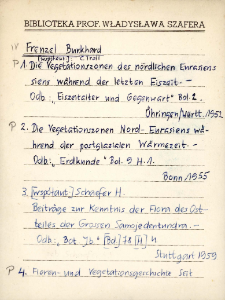 BIBLIOTEKA PROF. WŁADYSŁAWA SZAFERA
Frenzel Burkhard
[współaut.]: C. Troll
P 1. Die Vegetationszonen des nördlichen Eurasiens
siens während der letzten Eiszeit. —
Odb.: „Eiszeitalter und Gegenwart" Bd. 2.
Öhringen/Württ. 1952
P 2. Die Vegetationszonen Nord-Eurasiens wä-
hrend der postglazialen Wärmezeit.
Odb.: „Erdkunde" Bd. 9 H. 1.
Bonn 1955
3. [współaut.] Schaefer H.
Beiträge zur Kenntnis der Flora des Ost-
teiles der Grossen Samojedentundra. —
Odb.: „Bot. Jb." [Bd.] 78 [H.] 4
Stuttgart 1959
P 4. Floren- und Vegetationsgeschichte seit